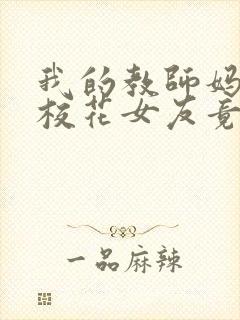 我的教師妈
校花女友竟
一品麻辣